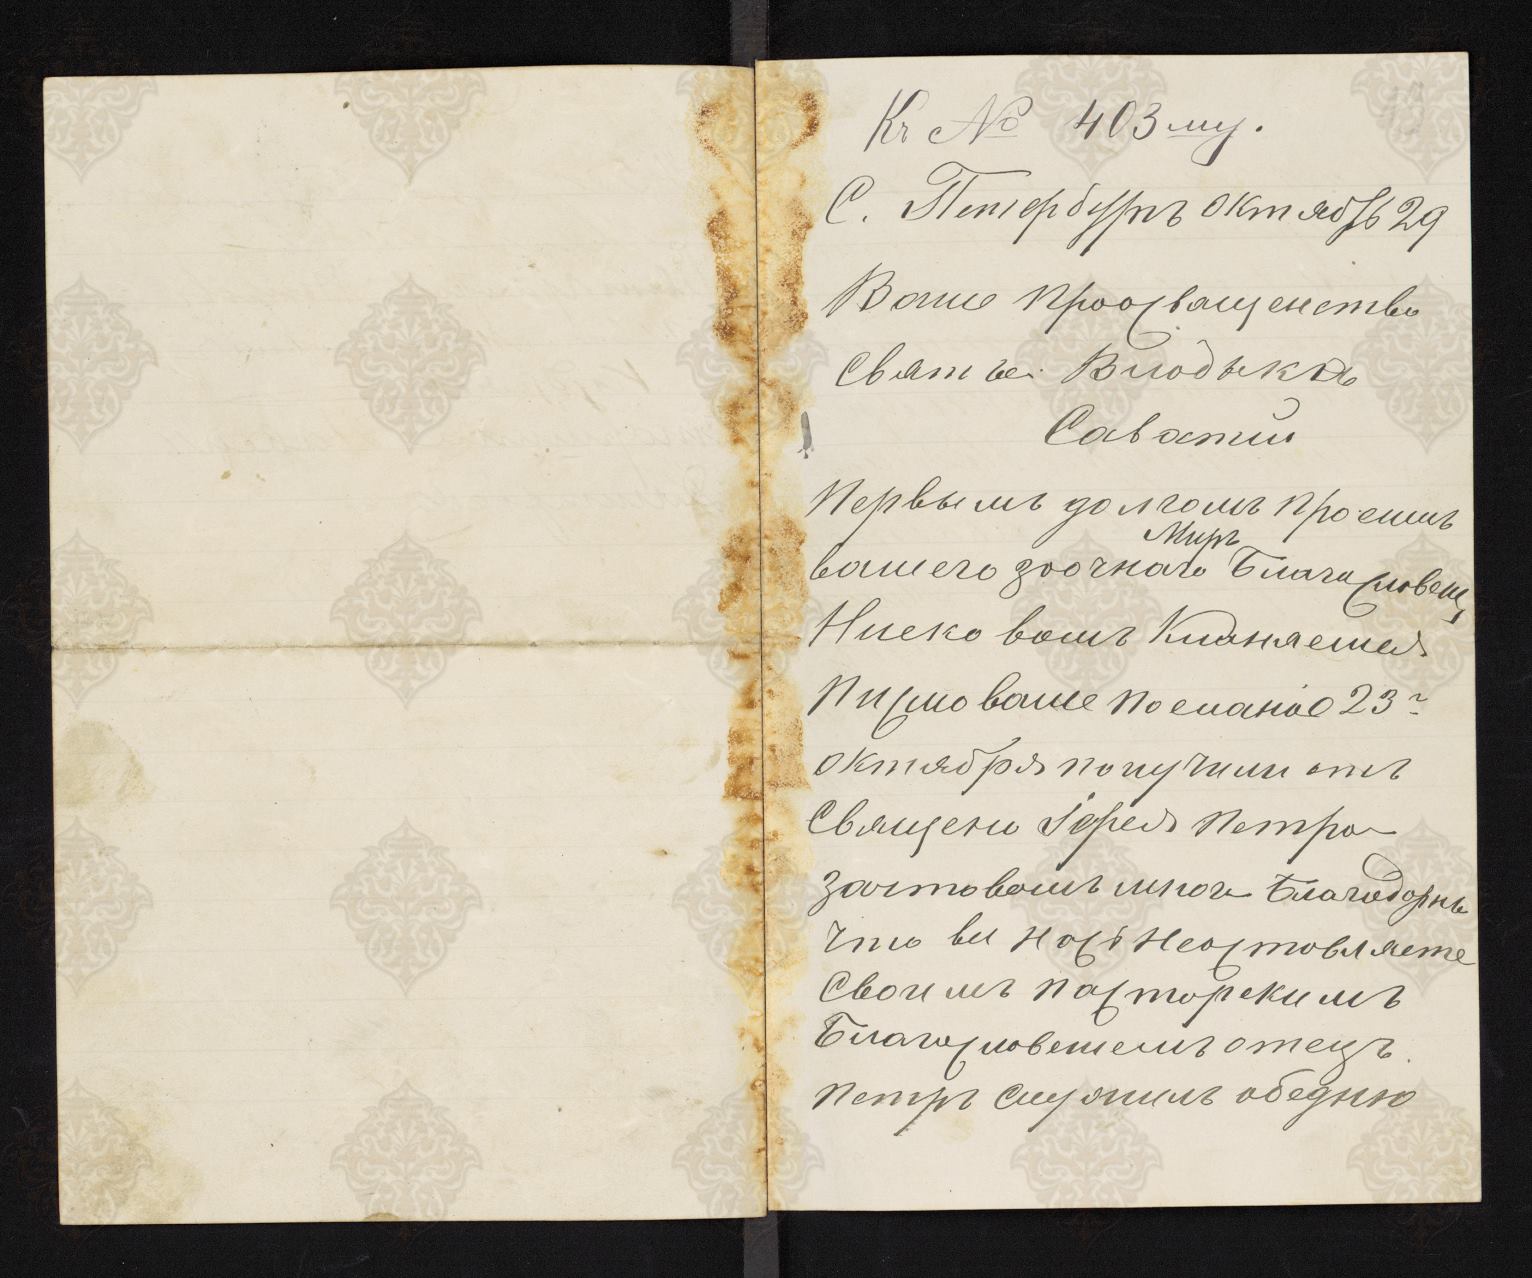 Къ № 403му.
С. Петербургъ октябрь 29
Ваше проосващенство
Святые Владыка
Саватий
Первымъ долгомъ Просимъ
Миръ
вашего заочнаго Благасловени,
Ниско вамъ Кланяемся
Писмо ваше Посланое 23г
октября получили отъ
Священо Іерея Петра
зачто вамъ многа Благодарны
что вы насъ Неоставляете
Своимъ Пасторскимъ
Благословениемъ отецъ.
Петръ Служилъ обедню